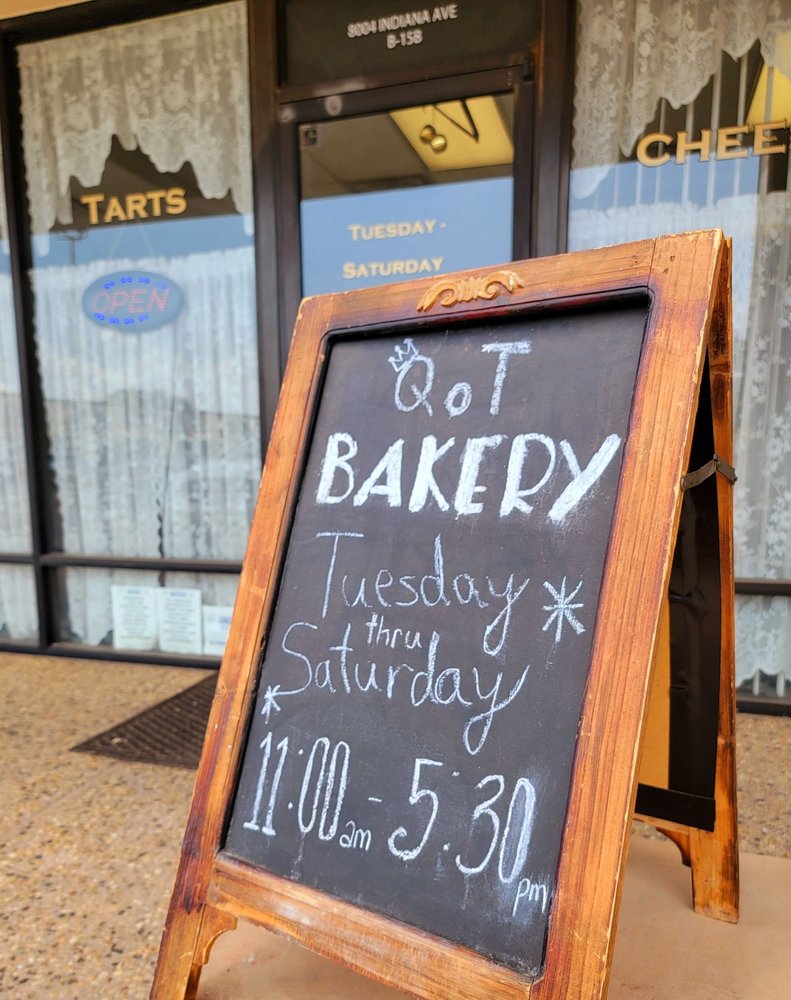 8004 INDIANA AVE
B-15B
TARTS
OPEN
TUESDAY -
SATURDAY
QoT
BAKERY
Tuesday
thru
Saturday
11:00am - 5:30pm